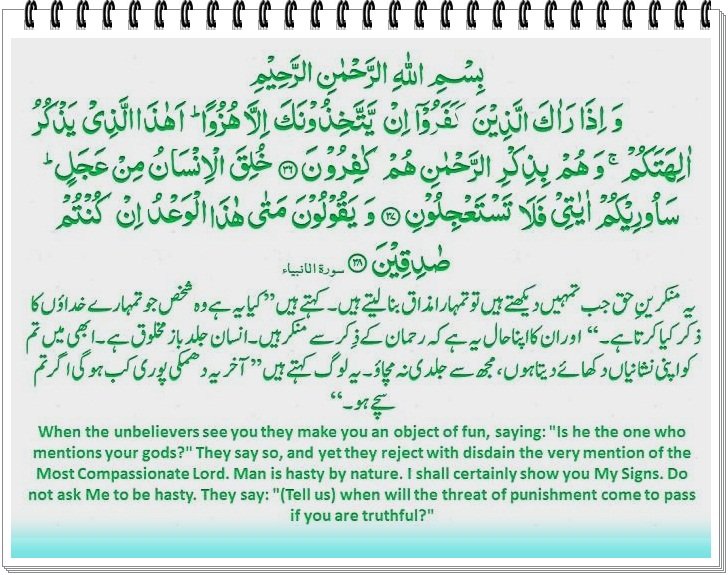 بِسْمِ اللهِ الرَّحْمٰنِ الرَّحِيْمِ
وَ اِذَا رَاٰكَ الَّذِيْنَ كَفَرُوْٓا اِنْ يَّتَّخِذُوْنَكَ اِلَّا هُزُوًا ؕ اَهٰذَا الَّذِيْ يَذْكُرُ
اٰلِهَتَكُمْ ۚ وَ هُمْ بِذِكْرِ الرَّحْمٰنِ هُمْ كٰفِرُوْنَ ﴿۳۶﴾ خُلِقَ الْاِنْسَانُ مِنْ عَجَلٍ ؕ
سَاُورِيْكُمْ اٰيٰتِيْ فَلَا تَسْتَعْجِلُوْنِ ﴿۳۷﴾ وَ يَقُوْلُوْنَ مَتٰى هٰذَا الْوَعْدُ اِنْ كُنْتُمْ
صٰدِقِيْنَ ﴿۳۸﴾ سورة الانبياء
یہ منکرینِ حق جب تمہیں دیکھتے ہیں تو تمہارا مذاق بنا لیتے ہیں۔ کہتے ہیں ”کیا یہ ہے وہ شخص جو تمہارے خداؤں کا
ذکر کیا کرتا ہے۔“ اور ان کا اپنا حال یہ ہے کہ رحمان کے ذِکر سے منکر ہیں۔ انسان جلد باز مخلوق ہے۔ ابھی میں تم
کو اپنی نشانیاں دکھائے دیتا ہوں، مجھ سے جلدی نہ مچاؤ۔ یہ لوگ کہتے ہیں ”آخر یہ دھمکی پوری کب ہوگی اگر تم
سچے ہو۔“
When the unbelievers see you they make you an object of fun, saying: "Is he the one who
mentions your gods?" They say so, and yet they reject with disdain the very mention of the
Most Compassionate Lord. Man is hasty by nature. I shall certainly show you My Signs. Do
not ask Me to be hasty. They say: "(Tell us) when will the threat of punishment come to pass
if you are truthful?"